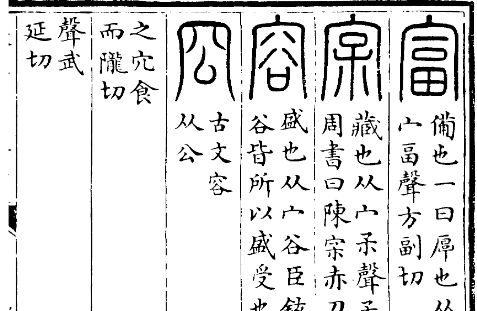 富
備也一曰厚也从
宀畐聲方副切
宲
藏也从宀𤓽聲
周書曰陳宲赤刀
容
盛也从宀谷臣鉉
谷皆所以盛受也
㝐
古文容
从公
之宂食
而隴切
聲武
延切